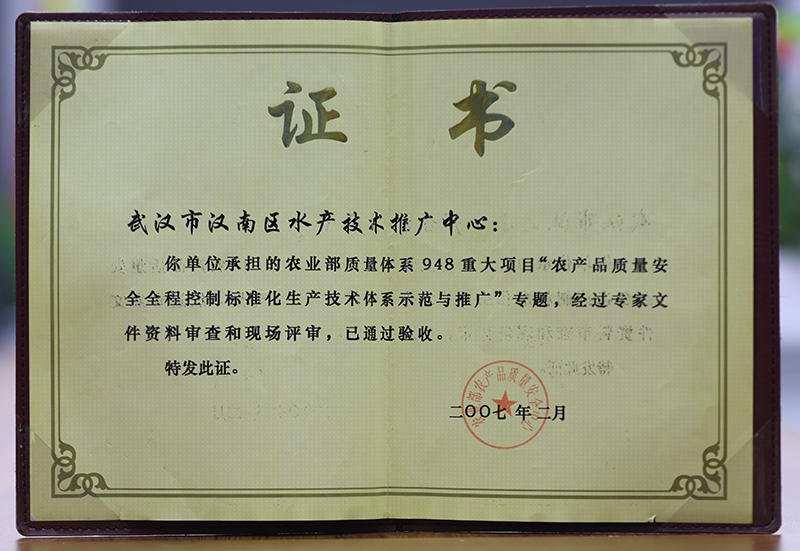 证 书
武汉市汉南区水产技术推广中心：
你单位承担的农业部质量体系948重大项目“农产品质量安
全全程控制标准化生产技术体系示范与推广”专题，经过专家文
件资料审查和现场评审，已通过验收。
特发此证。
二〇〇七年二月
农业部农产品质量安全中心